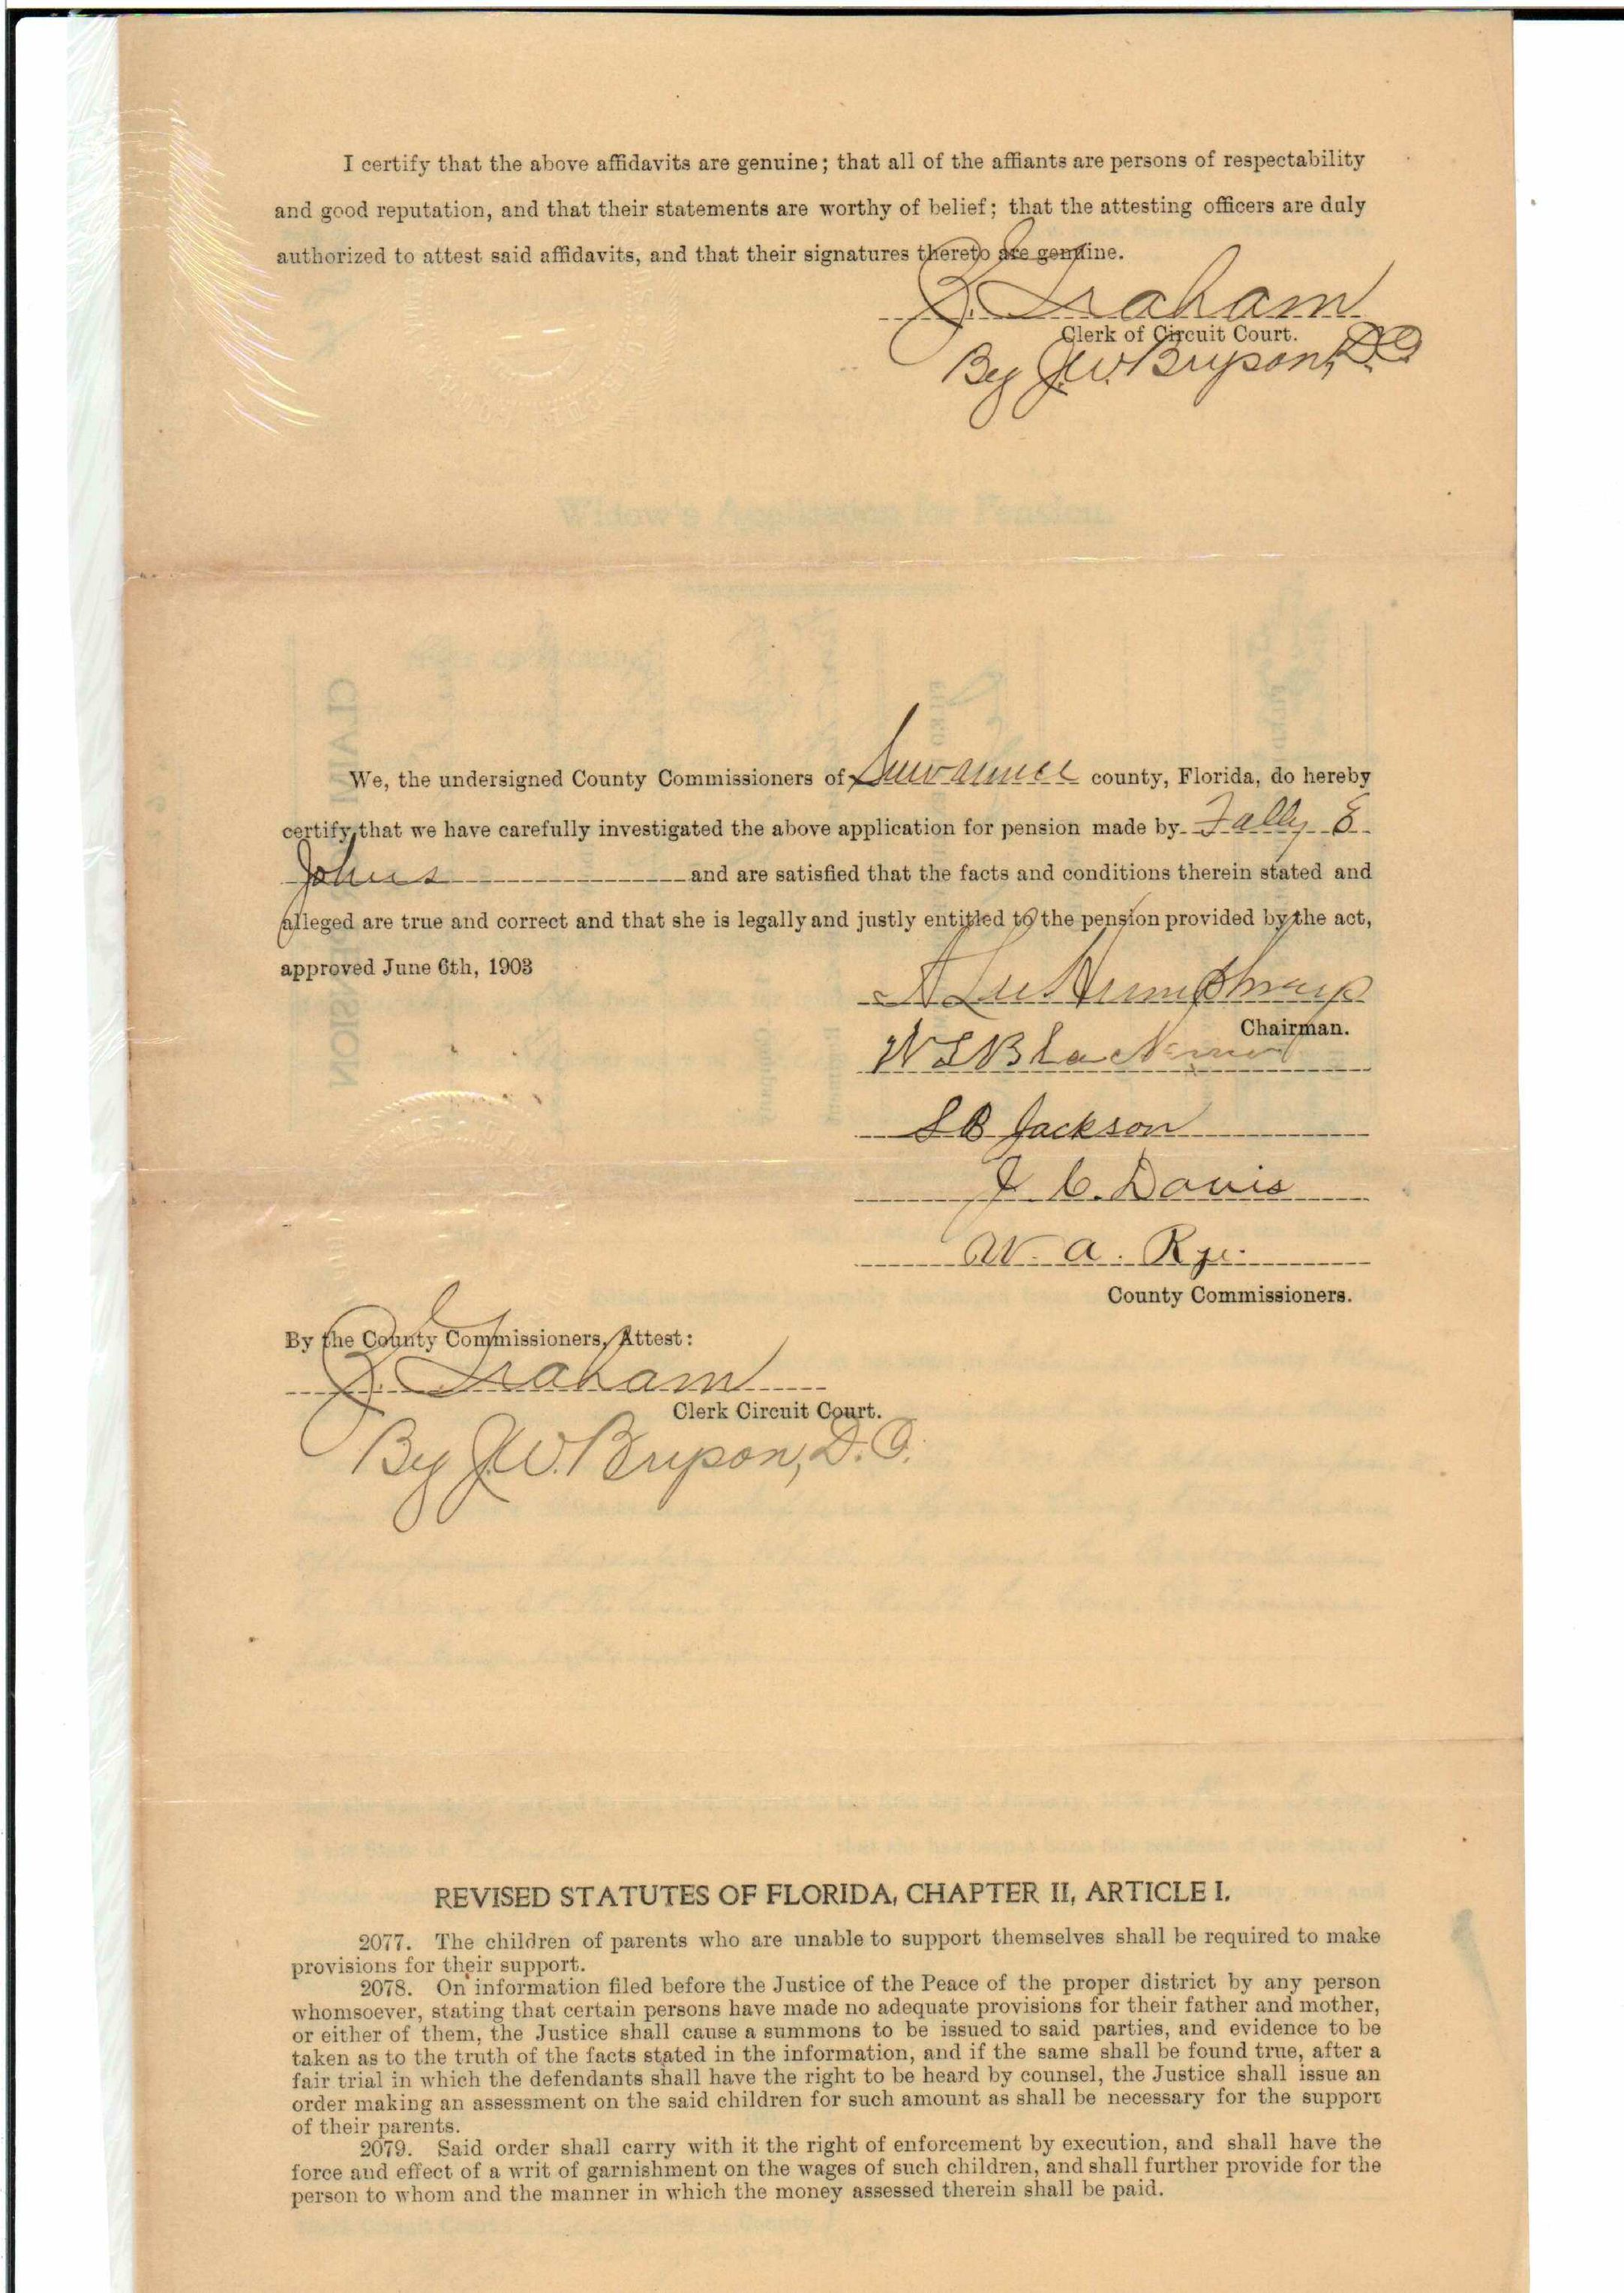 I certify that the above affidavits are genuine; that all of the affiants are persons of respectability
and good reputation, and that their statements are worthy of belief; that the attesting officers are duly
authorized to attest said affidavits, and that their signatures thereto are genuine.
Graham
Clerk of Circuit Court.
By J.W. Bryson, D.C.
Widow's Application for Pension.
We, the undersigned County Commissioners of Suwannee county, Florida, do hereby
certify that we have carefully investigated the above application for pension made by Fally E
Johns and are satisfied that the facts and conditions therein stated and
alleged are true and correct and that she is legally and justly entitled to the pension provided by the act,
approved June 6th, 1903
A Lee Humphreys
Chairman.
W S Blackmer
S B Jackson
J C. Davis
W. A. Rye.
County Commissioners.
By the County Commissioners, Attest:
Graham
Clerk Circuit Court.
By J.W. Bryson, D.C.
REVISED STATUTES OF FLORIDA, CHAPTER II, ARTICLE I.
2077. The children of parents who are unable to support themselves shall be required to make
provisions for their support.
2078. On information filed before the Justice of the Peace of the proper district by any person
whomsoever, stating that certain persons have made no adequate provisions for their father and mother,
or either of them, the Justice shall cause a summons to be issued to said parties, and evidence to be
taken as to the truth of the facts stated in the information, and if the same shall be found true, after a
fair trial in which the defendants shall have the right to be heard by counsel, the Justice shall issue an
order making an assessment on the said children for such amount as shall be necessary for the support
of their parents.
2079. Said order shall carry with it the right of enforcement by execution, and shall have the
force and effect of a writ of garnishment on the wages of such children, and shall further provide for the
person to whom and the manner in which the money assessed therein shall be paid.